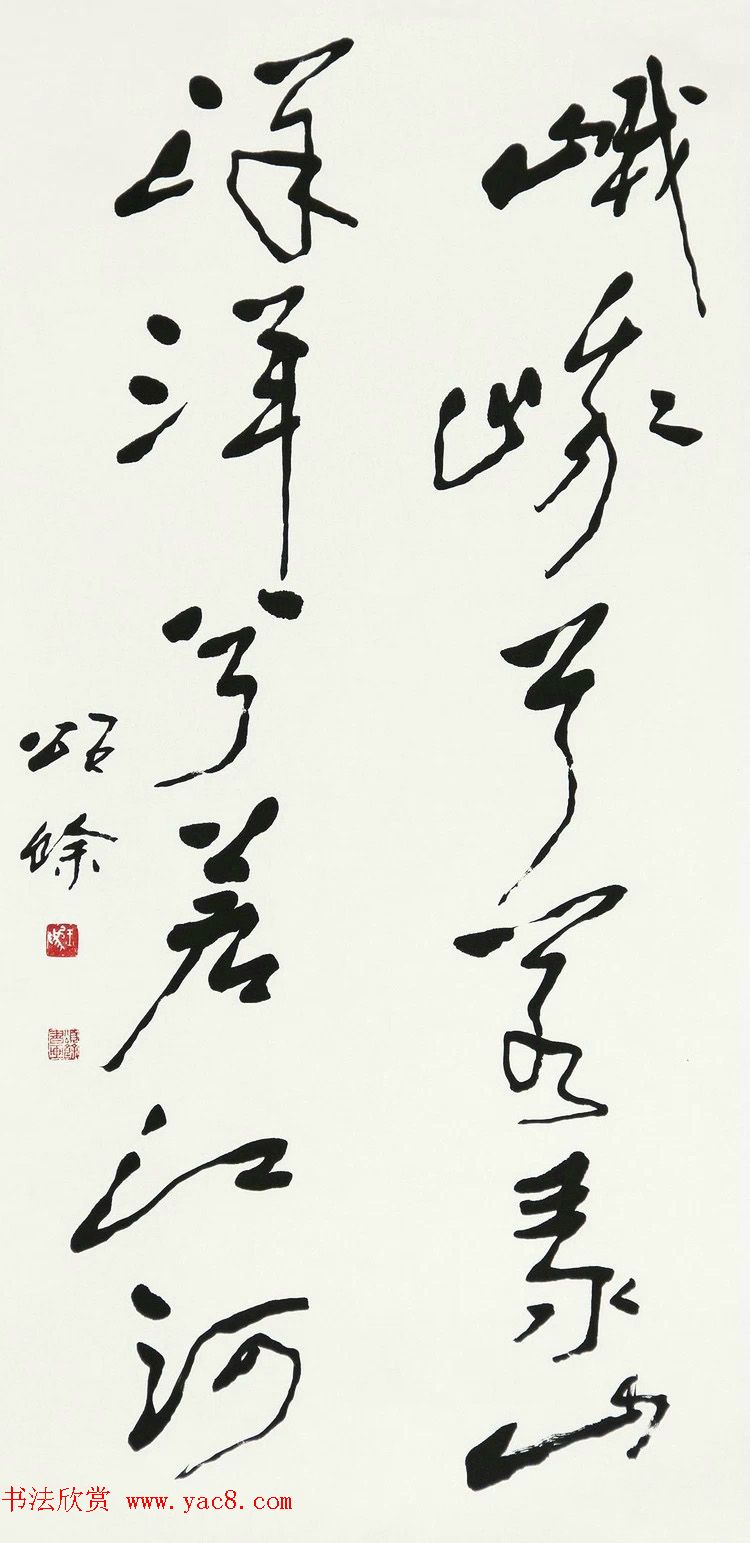 峨峨兮若泰山
洋洋兮若江河
颂馀
书法欣赏 www.yac8.com